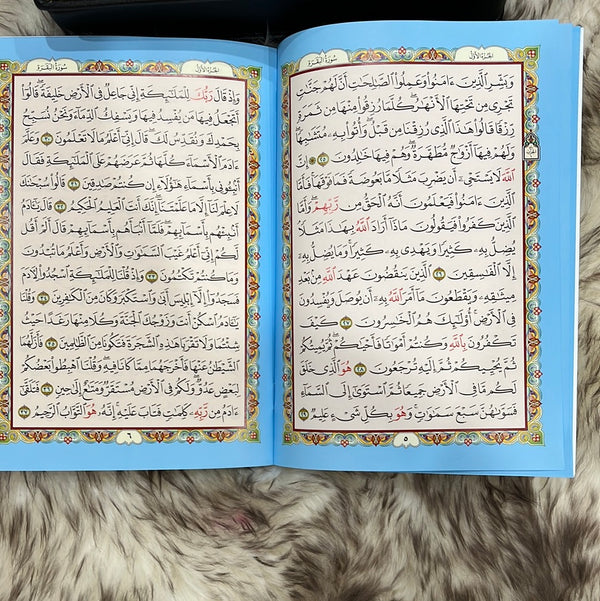 الجزء الأول
سورة البقرة
وَبَشِّرِ ٱلَّذِينَ ءَامَنُوا۟ وَعَمِلُوا۟ ٱلصَّـٰلِحَـٰتِ أَنَّ لَهُمْ جَنَّـٰتٍ
تَجْرِى مِن تَحْتِهَا ٱلْأَنْهَـٰرُ ۖ كُلَّمَا رُزِقُوا۟ مِنْهَا مِن ثَمَرَةٍ
رِّزْقًا ۙ قَالُوا۟ هَـٰذَا ٱلَّذِى رُزِقْنَا مِن قَبْلُ ۖ وَأُتُوا۟ بِهِۦ مُتَشَـٰبِهًا ۖ
وَلَهُمْ فِيهَآ أَزْوَٰجٌ مُّطَهَّرَةٌ ۖ وَهُمْ فِيهَا خَـٰلِدُونَ ٢٥ ۞ إِنَّ
ٱللَّهَ لَا يَسْتَحْىِۦٓ أَن يَضْرِبَ مَثَلًا مَّا بَعُوضَةً فَمَا فَوْقَهَا ۚ فَأَمَّا
ٱلَّذِينَ ءَامَنُوا۟ فَيَعْلَمُونَ أَنَّهُ ٱلْحَقُّ مِن رَّبِّهِمْ ۖ وَأَمَّا
ٱلَّذِينَ كَفَرُوا۟ فَيَقُولُونَ مَاذَآ أَرَادَ ٱللَّهُ بِهَـٰذَا مَثَلًا ۘ
يُضِلُّ بِهِۦ كَثِيرًا وَيَهْدِى بِهِۦ كَثِيرًا ۚ وَمَا يُضِلُّ بِهِۦٓ
إِلَّا ٱلْفَـٰسِقِينَ ٢٦ ٱلَّذِينَ يَنقُضُونَ عَهْدَ ٱللَّهِ مِنۢ بَعْدِ
مِيثَـٰقِهِۦ وَيَقْطَعُونَ مَآ أَمَرَ ٱللَّهُ بِهِۦٓ أَن يُوصَلَ وَيُفْسِدُونَ
فِى ٱلْأَرْضِ ۚ أُو۟لَـٰٓئِكَ هُمُ ٱلْخَـٰسِرُونَ ٢٧ كَيْفَ
تَكْفُرُونَ بِٱللَّهِ وَكُنتُمْ أَمْوَٰتًا فَأَحْيَـٰكُمْ ۖ ثُمَّ يُمِيتُكُمْ
ثُمَّ يُحْيِيكُمْ ثُمَّ إِلَيْهِ تُرْجَعُونَ ٢٨ هُوَ ٱلَّذِى خَلَقَ
لَكُم مَّا فِى ٱلْأَرْضِ جَمِيعًا ثُمَّ ٱسْتَوَىٰٓ إِلَى ٱلسَّمَآءِ
فَسَوَّىٰهُنَّ سَبْعَ سَمَـٰوَٰتٍ ۚ وَهُوَ بِكُلِّ شَىْءٍ عَلِيمٌ ٢٩
٥
الجزء الأول
سورة البقرة
وَإِذْ قَالَ رَبُّكَ لِلْمَلَـٰٓئِكَةِ إِنِّى جَاعِلٌ فِى ٱلْأَرْضِ خَلِيفَةً ۖ قَالُوٓا۟
أَتَجْعَلُ فِيهَا مَن يُفْسِدُ فِيهَا وَيَسْفِكُ ٱلدِّمَآءَ وَنَحْنُ نُسَبِّحُ
بِحَمْدِكَ وَنُقَدِّسُ لَكَ ۖ قَالَ إِنِّىٓ أَعْلَمُ مَا لَا تَعْلَمُونَ ٣٠ وَعَلَّمَ
ءَادَمَ ٱلْأَسْمَآءَ كُلَّهَا ثُمَّ عَرَضَهُمْ عَلَى ٱلْمَلَـٰٓئِكَةِ فَقَالَ
أَنۢبِـُٔونِى بِأَسْمَآءِ هَـٰٓؤُلَآءِ إِن كُنتُمْ صَـٰدِقِينَ ٣١ قَالُوا۟ سُبْحَـٰنَكَ
لَا عِلْمَ لَنَآ إِلَّا مَا عَلَّمْتَنَآ ۖ إِنَّكَ أَنتَ ٱلْعَلِيمُ ٱلْحَكِيمُ ٣٢ قَالَ يَـٰٓـَٔادَمُ
أَنۢبِئْهُم بِأَسْمَآئِهِمْ ۖ فَلَمَّآ أَنۢبَأَهُم بِأَسْمَآئِهِمْ قَالَ أَلَمْ أَقُل
لَّكُمْ إِنِّىٓ أَعْلَمُ غَيْبَ ٱلسَّمَـٰوَٰتِ وَٱلْأَرْضِ وَأَعْلَمُ مَا تُبْدُونَ
وَمَا كُنتُمْ تَكْتُمُونَ ٣٣ وَإِذْ قُلْنَا لِلْمَلَـٰٓئِكَةِ ٱسْجُدُوا۟ لِـَٔادَمَ
فَسَجَدُوٓا۟ إِلَّآ إِبْلِيسَ أَبَىٰ وَٱسْتَكْبَرَ وَكَانَ مِنَ ٱلْكَـٰفِرِينَ ٣٤ وَقُلْنَا
يَـٰٓـَٔادَمُ ٱسْكُنْ أَنتَ وَزَوْجُكَ ٱلْجَنَّةَ وَكُلَا مِنْهَا رَغَدًا حَيْثُ
شِئْتُمَا وَلَا تَقْرَبَا هَـٰذِهِ ٱلشَّجَرَةَ فَتَكُونَا مِنَ ٱلظَّـٰلِمِينَ ٣٥ فَأَزَلَّهُمَا
ٱلشَّيْطَـٰنُ عَنْهَا فَأَخْرَجَهُمَا مِمَّا كَانَا فِيهِ ۖ وَقُلْنَا ٱهْبِطُوا۟ بَعْضُكُمْ
لِبَعْضٍ عَدُوٌّ ۖ وَلَكُمْ فِى ٱلْأَرْضِ مُسْتَقَرٌّ وَمَتَـٰعٌ إِلَىٰ حِينٍ ٣٦ فَتَلَقَّىٰٓ
ءَادَمُ مِن رَّبِّهِۦ كَلِمَـٰتٍ فَتَابَ عَلَيْهِ ۚ إِنَّهُۥ هُوَ ٱلتَّوَّابُ ٱلرَّحِيمُ ٣٧
٦